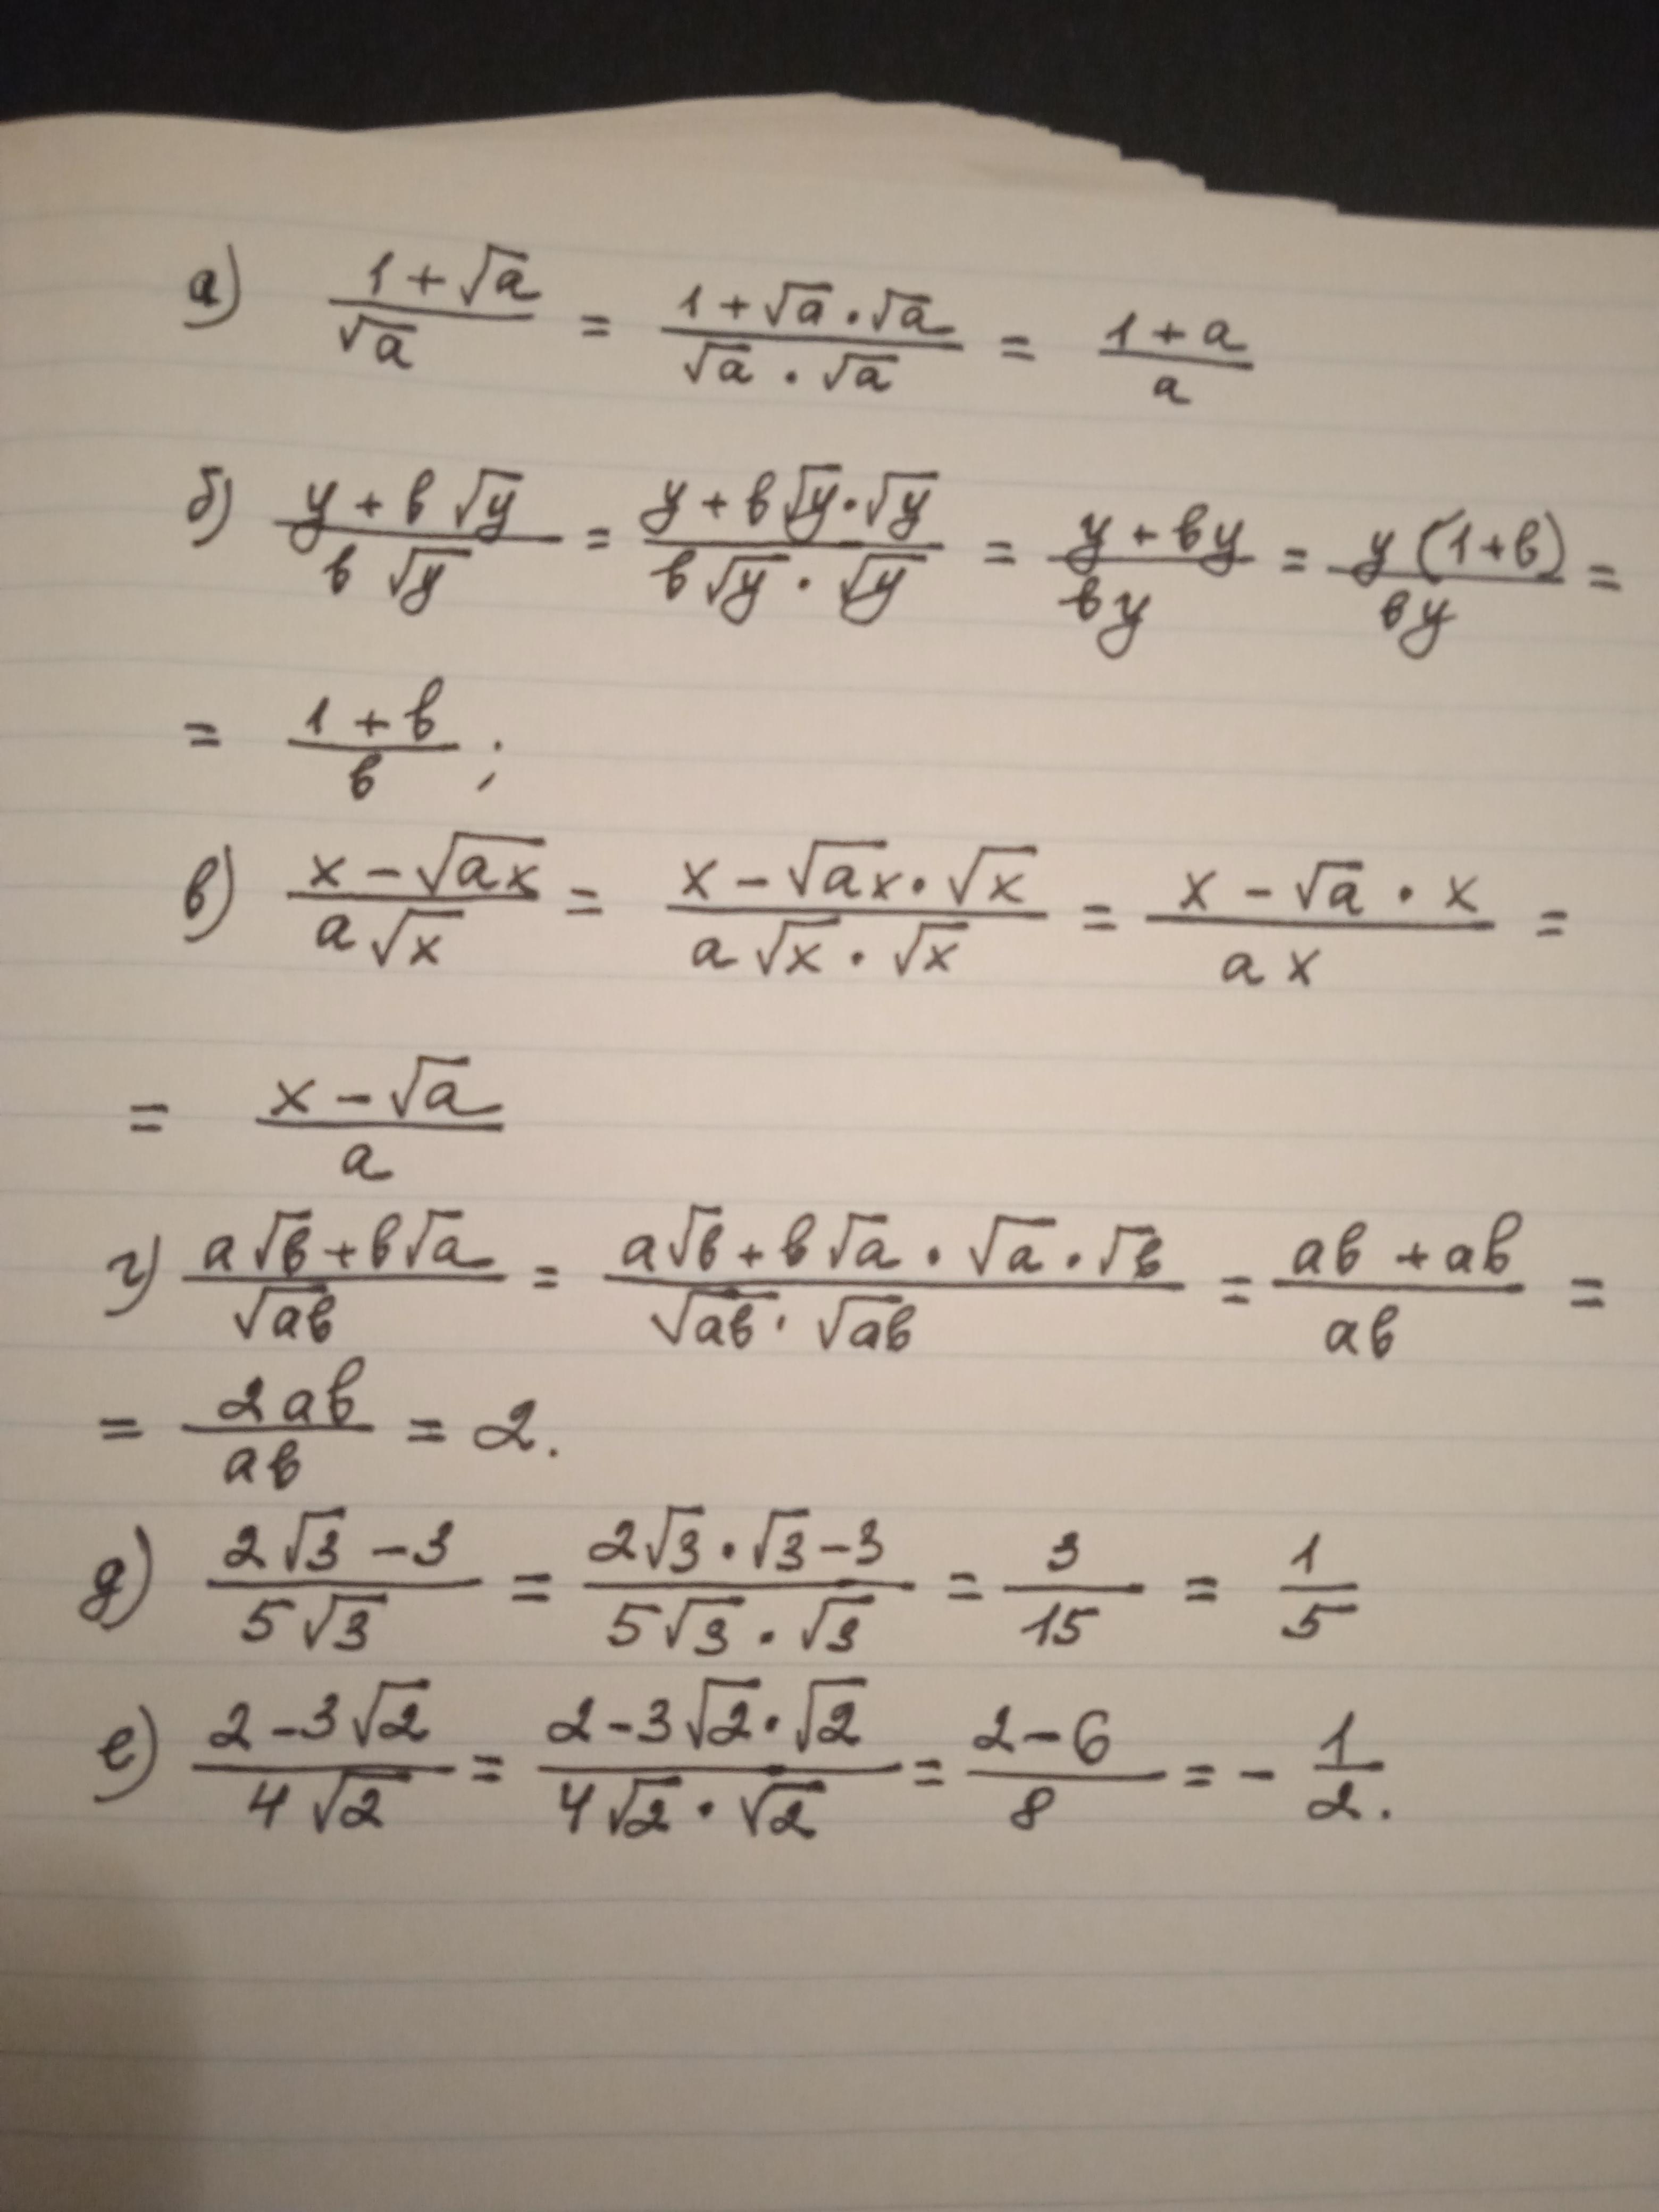 а) (1+√a)/√a = (1+√a·√a)/(√a·√a) = (1+a)/a
б) (y+b√y)/(b√y) = (y+b√y·√y)/(b√y·√y) = (y+by)/(by) = (y(1+b))/(by) =
= (1+b)/b ;
в) (x-√ax)/(a√x) = (x-√ax·√x)/(a√x·√x) = (x-√a·x)/(ax) =
= (x-√a)/a
г) (a√b+b√a)/√ab = (a√b+b√a·√a·√b)/(√ab·√ab) = (ab+ab)/(ab) =
= (2ab)/(ab) = 2.
д) (2√3-3)/(5√3) = (2√3·√3-3)/(5√3·√3) = 3/15 = 1/5
е) (2-3√2)/(4√2) = (2-3√2·√2)/(4√2·√2) = (2-6)/8 = -1/2.